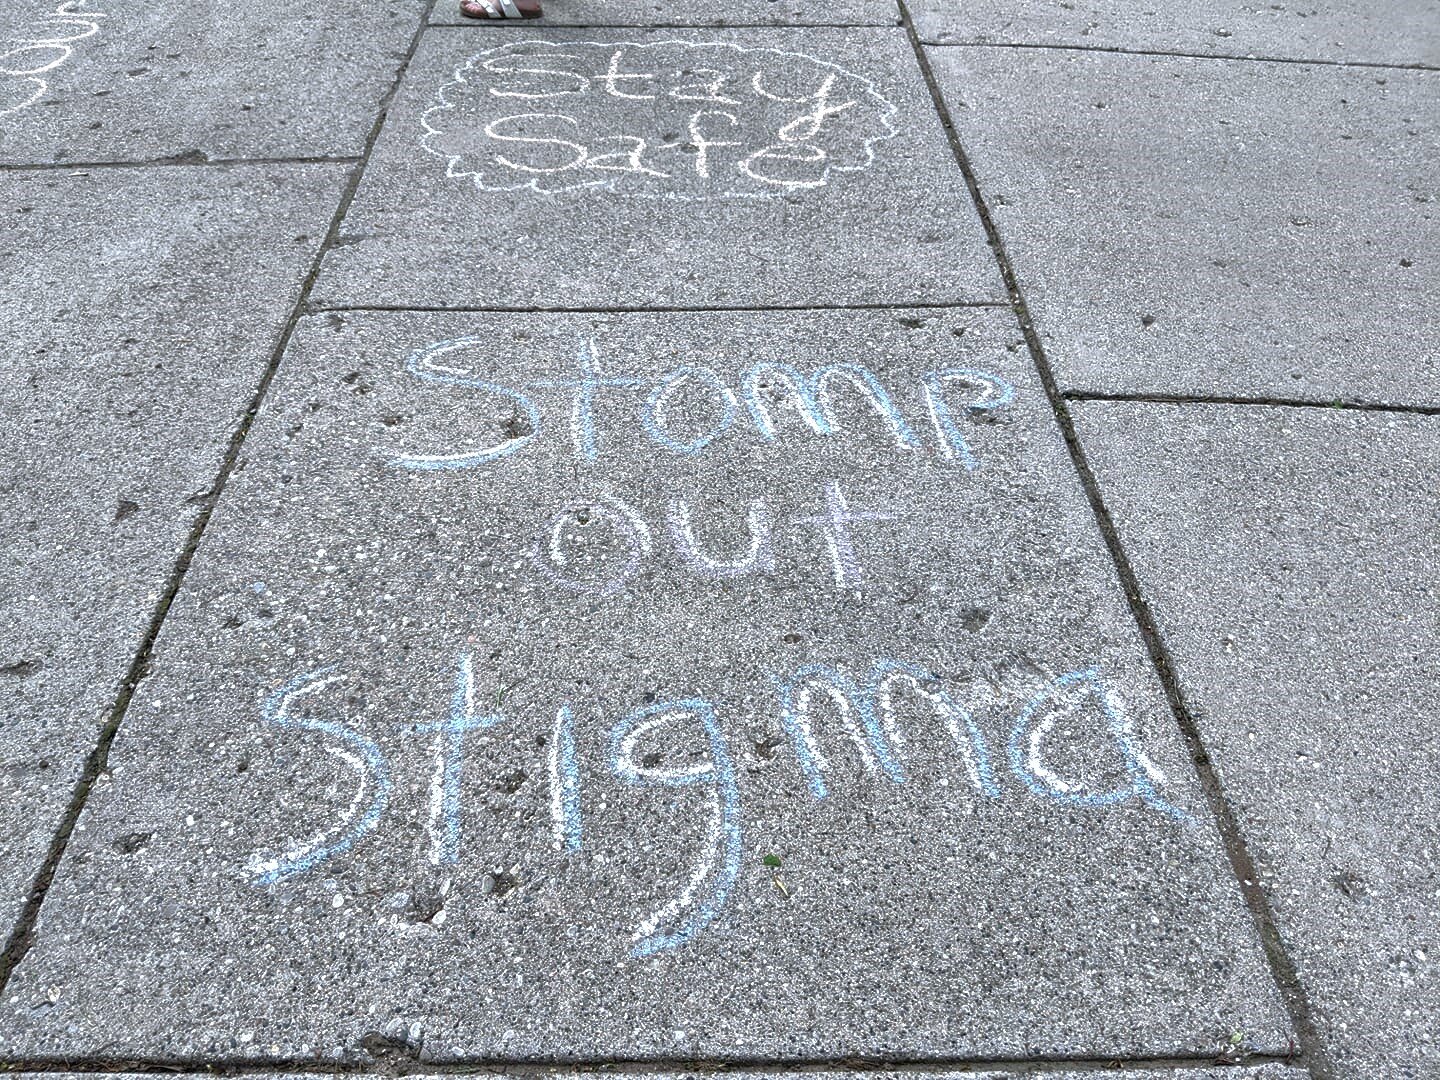 Stay
Safe
Stomp
out
Stigma